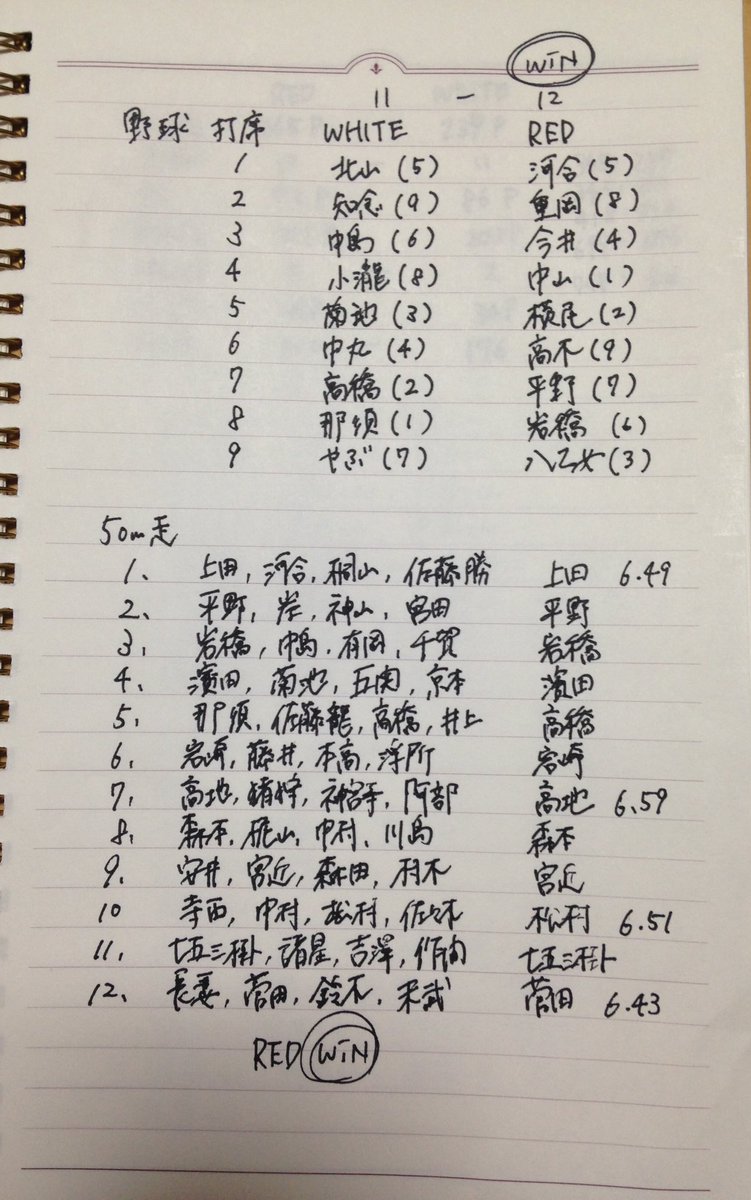 WIN
11 - 12
野球 打席 WHITE RED
1 北山(5) 河合(5)
2 知念(9) 重岡(8)
3 中島(6) 今井(4)
4 小瀧(8) 中山(1)
5 菊池(3) 横尾(2)
6 中丸(4) 高木(9)
7 高橋(2) 平野(7)
8 那須(1) 岩橋(6)
9 やぶ(7) 八乙女(3)
50m走
1、 上田, 河合, 桐山, 佐藤勝 上田 6.49
2、 平野, 岸, 神山, 宮田 平野
3、 岩橋, 中島, 有岡, 千賀 岩橋
4、 濱田, 菊池, 五関, 京本 濱田
5、 那須, 佐藤龍, 高橋, 井上 高橋
6、 岩崎, 藤井, 本高, 浮所 岩崎
7、 高地, 猪狩, 神宮寺, 阿部 高地 6.59
8、 森本, 梶山, 中村, 川島 森本
9、 安井, 宮近, 森田, 村木 宮近
10 寺西, 中村, 松村, 佐々木 松村 6.51
11、 七五三掛, 諸星, 吉澤, 作間 七五三掛
12、 長妻, 菅田, 鈴木, 末武 菅田 6.43
RED WIN